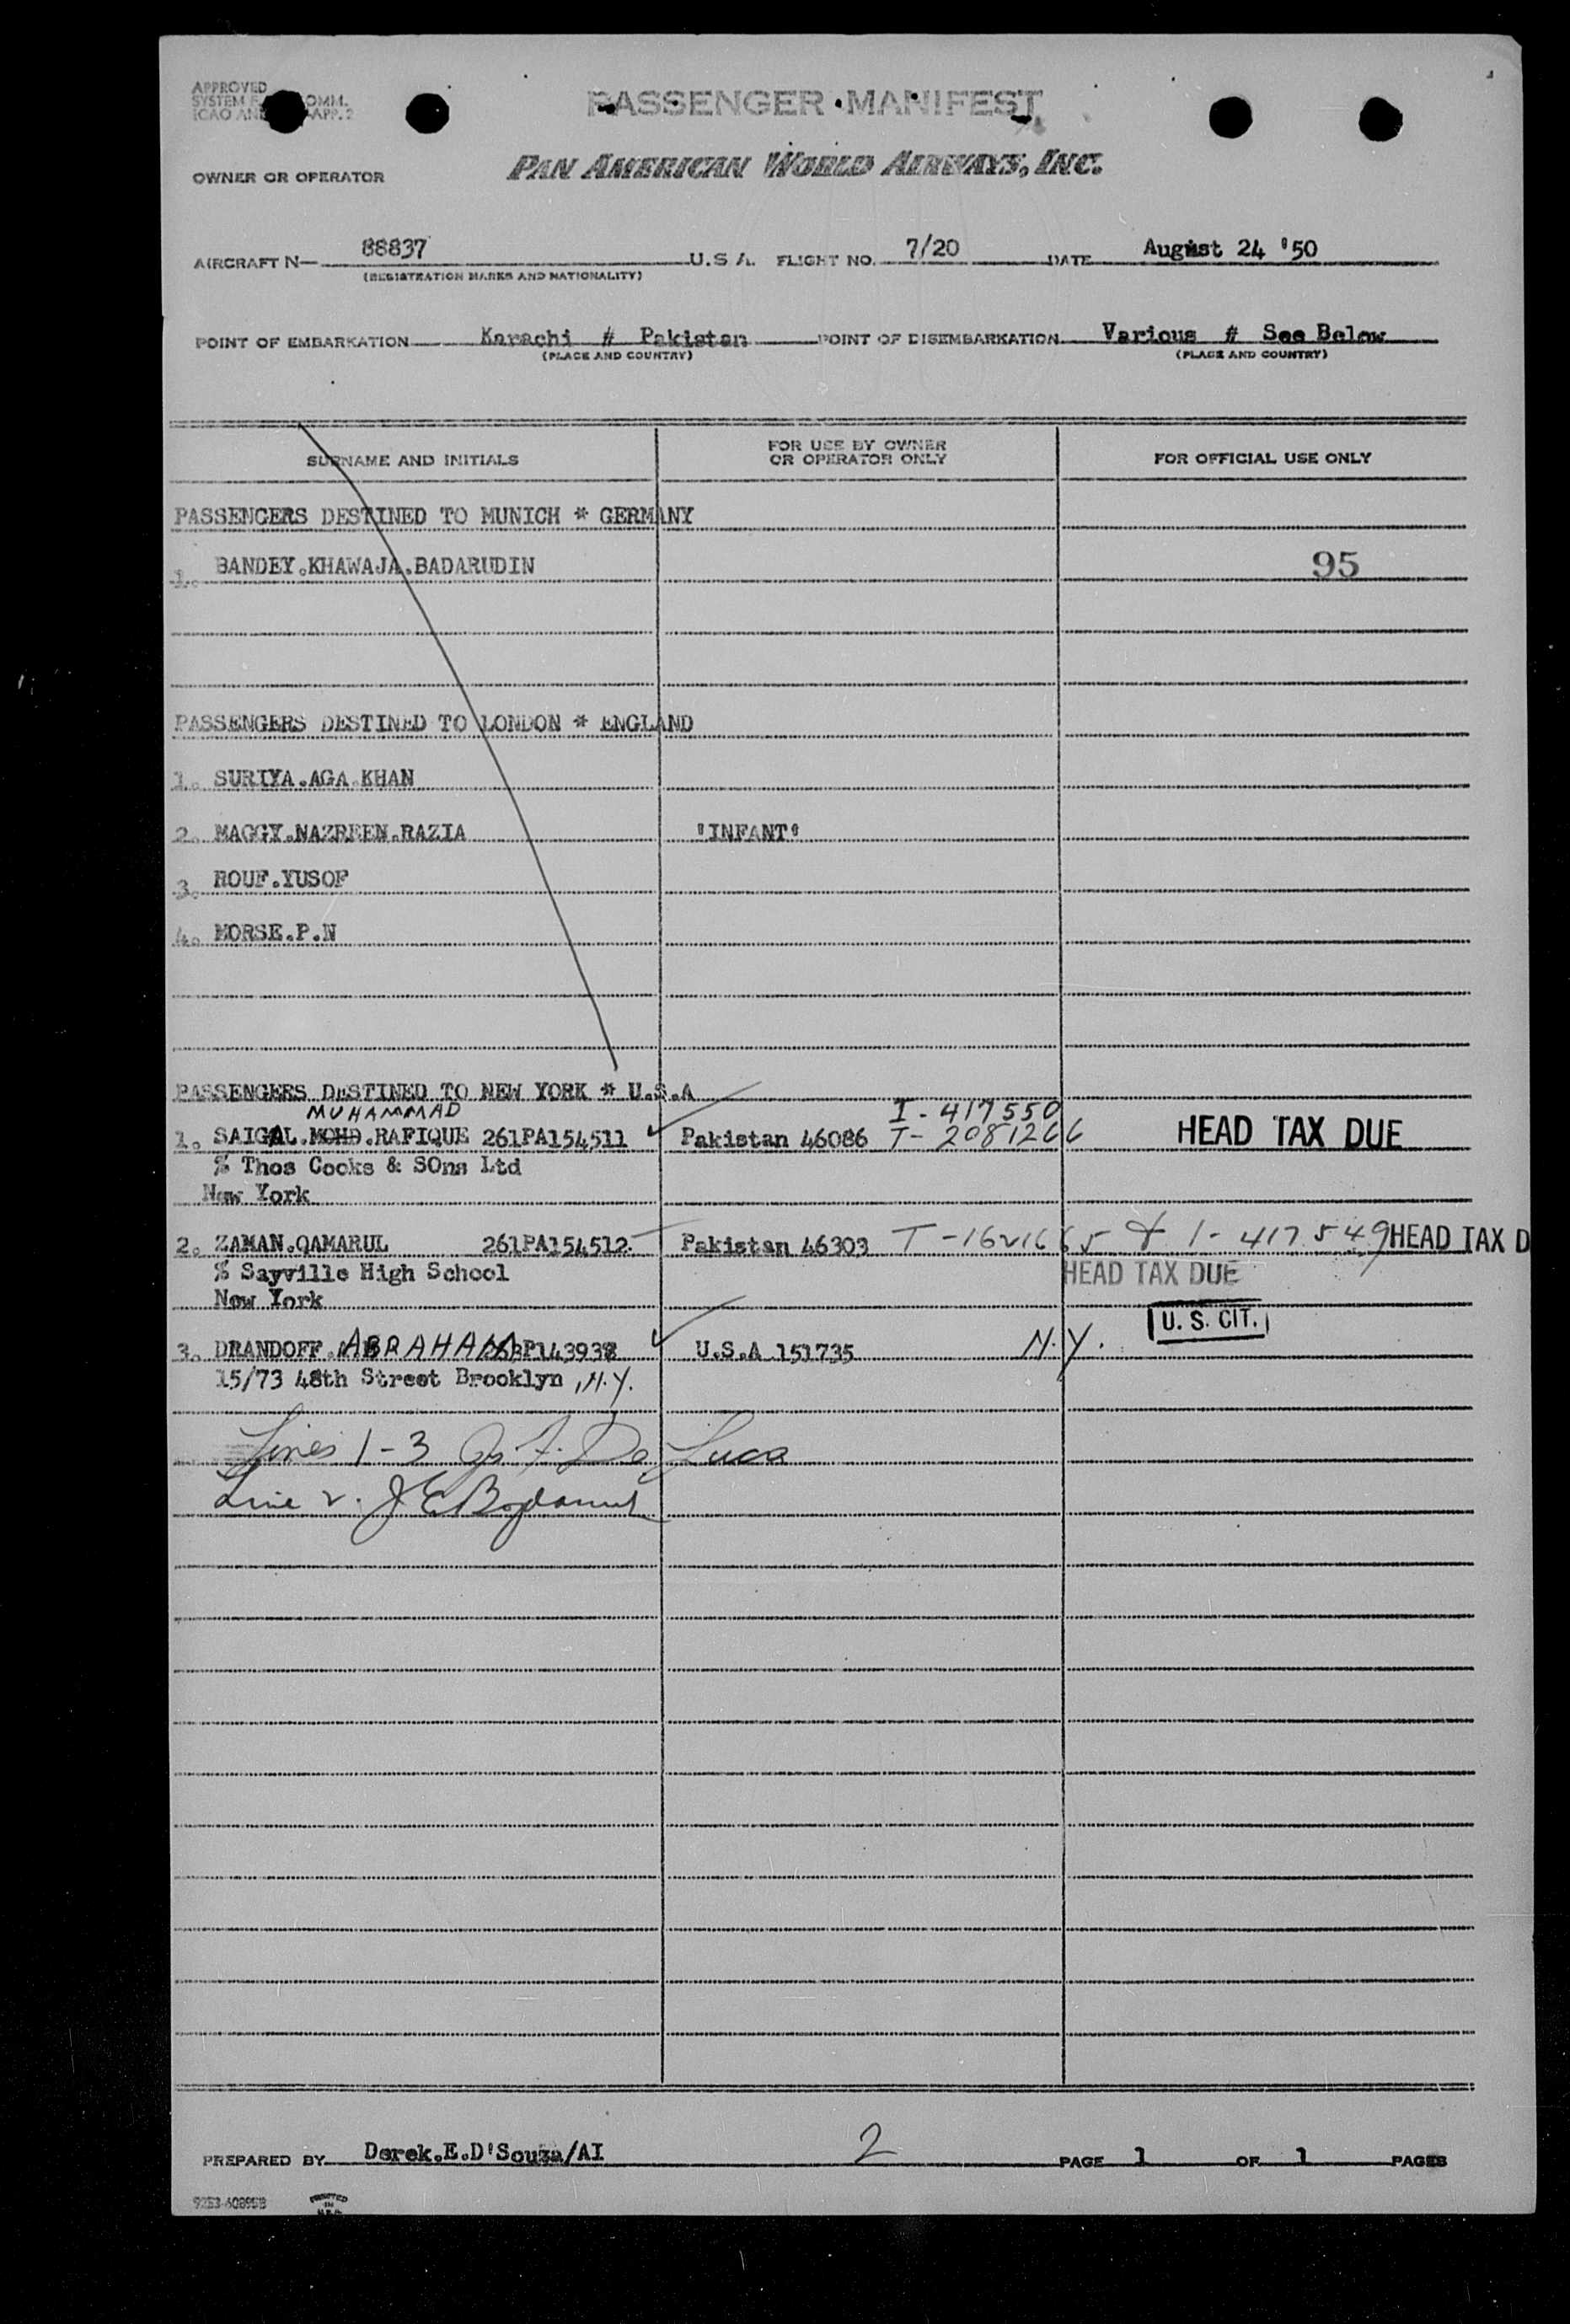 APPROVED
SYSTEM F OMM.
ICAO AN APP. 2
PASSENGER MANIFEST
OWNER OR OPERATOR PAN AMERICAN WORLD AIRWAYS, INC.
AIRCRAFT N— 88837 U.S A. FLIGHT NO. 7/20 DATE August 24 '50
(REGISTRATION MARKS AND NATIONALITY)
POINT OF EMBARKATION Karachi # Pakistan POINT OF DISEMBARKATION Various # See Below
(PLACE AND COUNTRY) (PLACE AND COUNTRY)
SURNAME AND INITIALS FOR USE BY OWNER OR OPERATOR ONLY FOR OFFICIAL USE ONLY
PASSENGERS DESTINED TO MUNICH * GERMANY
1. BANDEY.KHAWAJA.BADARUDIN 95
PASSENGERS DESTINED TO LONDON * ENGLAND
1. SURIYA.AGA.KHAN
2. MAGGY.NAZREEN.RAZIA 'INFANT'
3. ROUF.YUSOF
4. MORSE.P.N
PASSENGERS DESTINED TO NEW YORK * U.S.A
MUHAMMAD I-417550
1. SAIGAL.MOHD.RAFIQUE 261PA154511 Pakistan 46086 T-2081266 HEAD TAX DUE
% Thos Cooks & SOns Ltd
New York
2. ZAMAN.QAMARUL 261PA154512 Pakistan 46303 T-1621665 & 1-417549 HEAD TAX D
% Sayville High School HEAD TAX DUE
New York
U. S. CIT.
3. DRANDOFF. ABRAHAM P143938 U.S.A 151735 N.Y.
15/73 48th Street Brooklyn, N.Y.
Lines 1-3 De Luca
Line 2. J E
PREPARED BY Derek.E.D'Souza/AI 2 PAGE 1 OF 1 PAGES
PRINTED
IN
U.S.A.